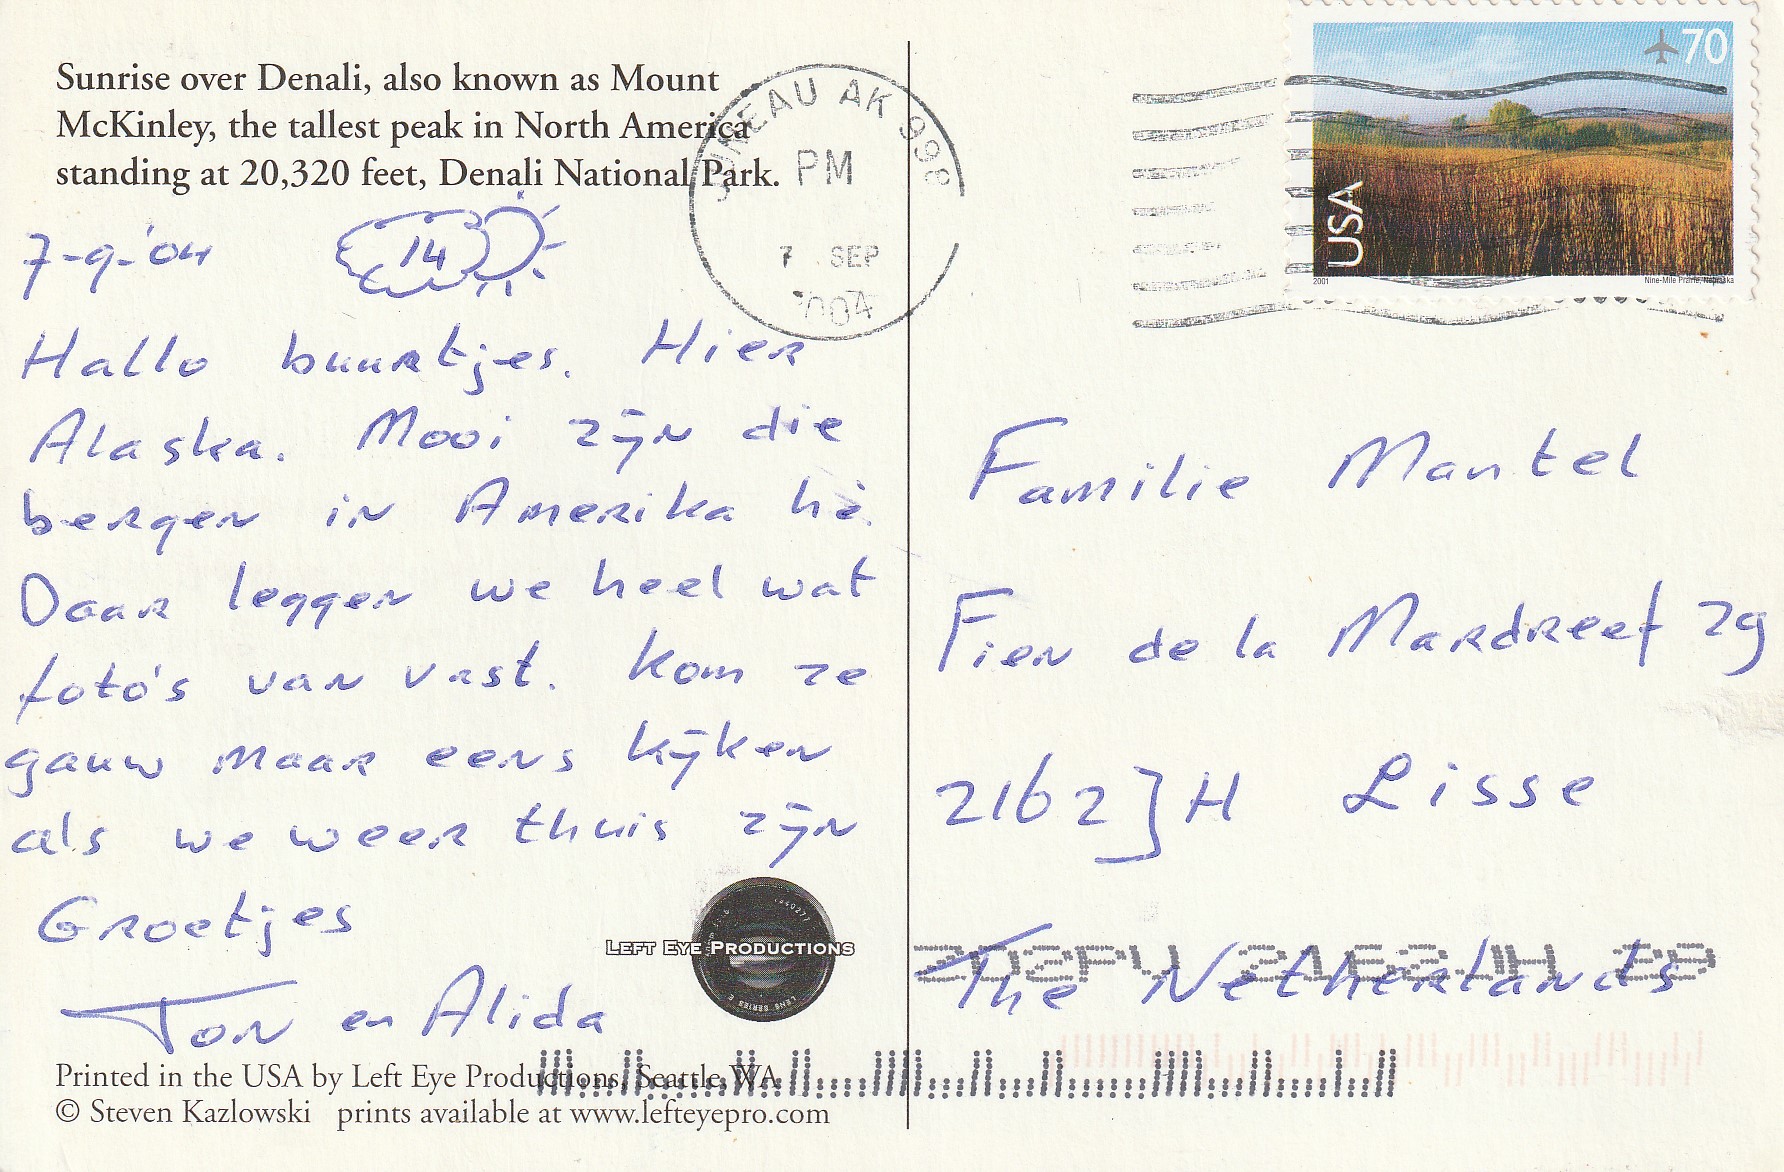 Sunrise over Denali, also known as Mount
McKinley, the tallest peak in North America
standing at 20,320 feet, Denali National Park.
JUNEAU AK 998
PM
7 SEP
004
70
USA
2001
Nine-Mile Prairie, Nebraska
7-9-'04
14
Hallo buurtjes. Hier
Alaska. Mooi zijn die
bergen in Amerika hè.
Daar leggen we heel wat
foto's van vast. Kom ze
gauw maar eens kijken
als we weer thuis zijn
Groetjes
Ton en Alida
Familie Mantel
Fien de la Mardreef 29
2162 JH Lisse
The Netherlands
LEFT EYE PRODUCTIONS
Printed in the USA by Left Eye Productions, Seattle, WA
© Steven Kazlowski prints available at www.lefteyepro.com